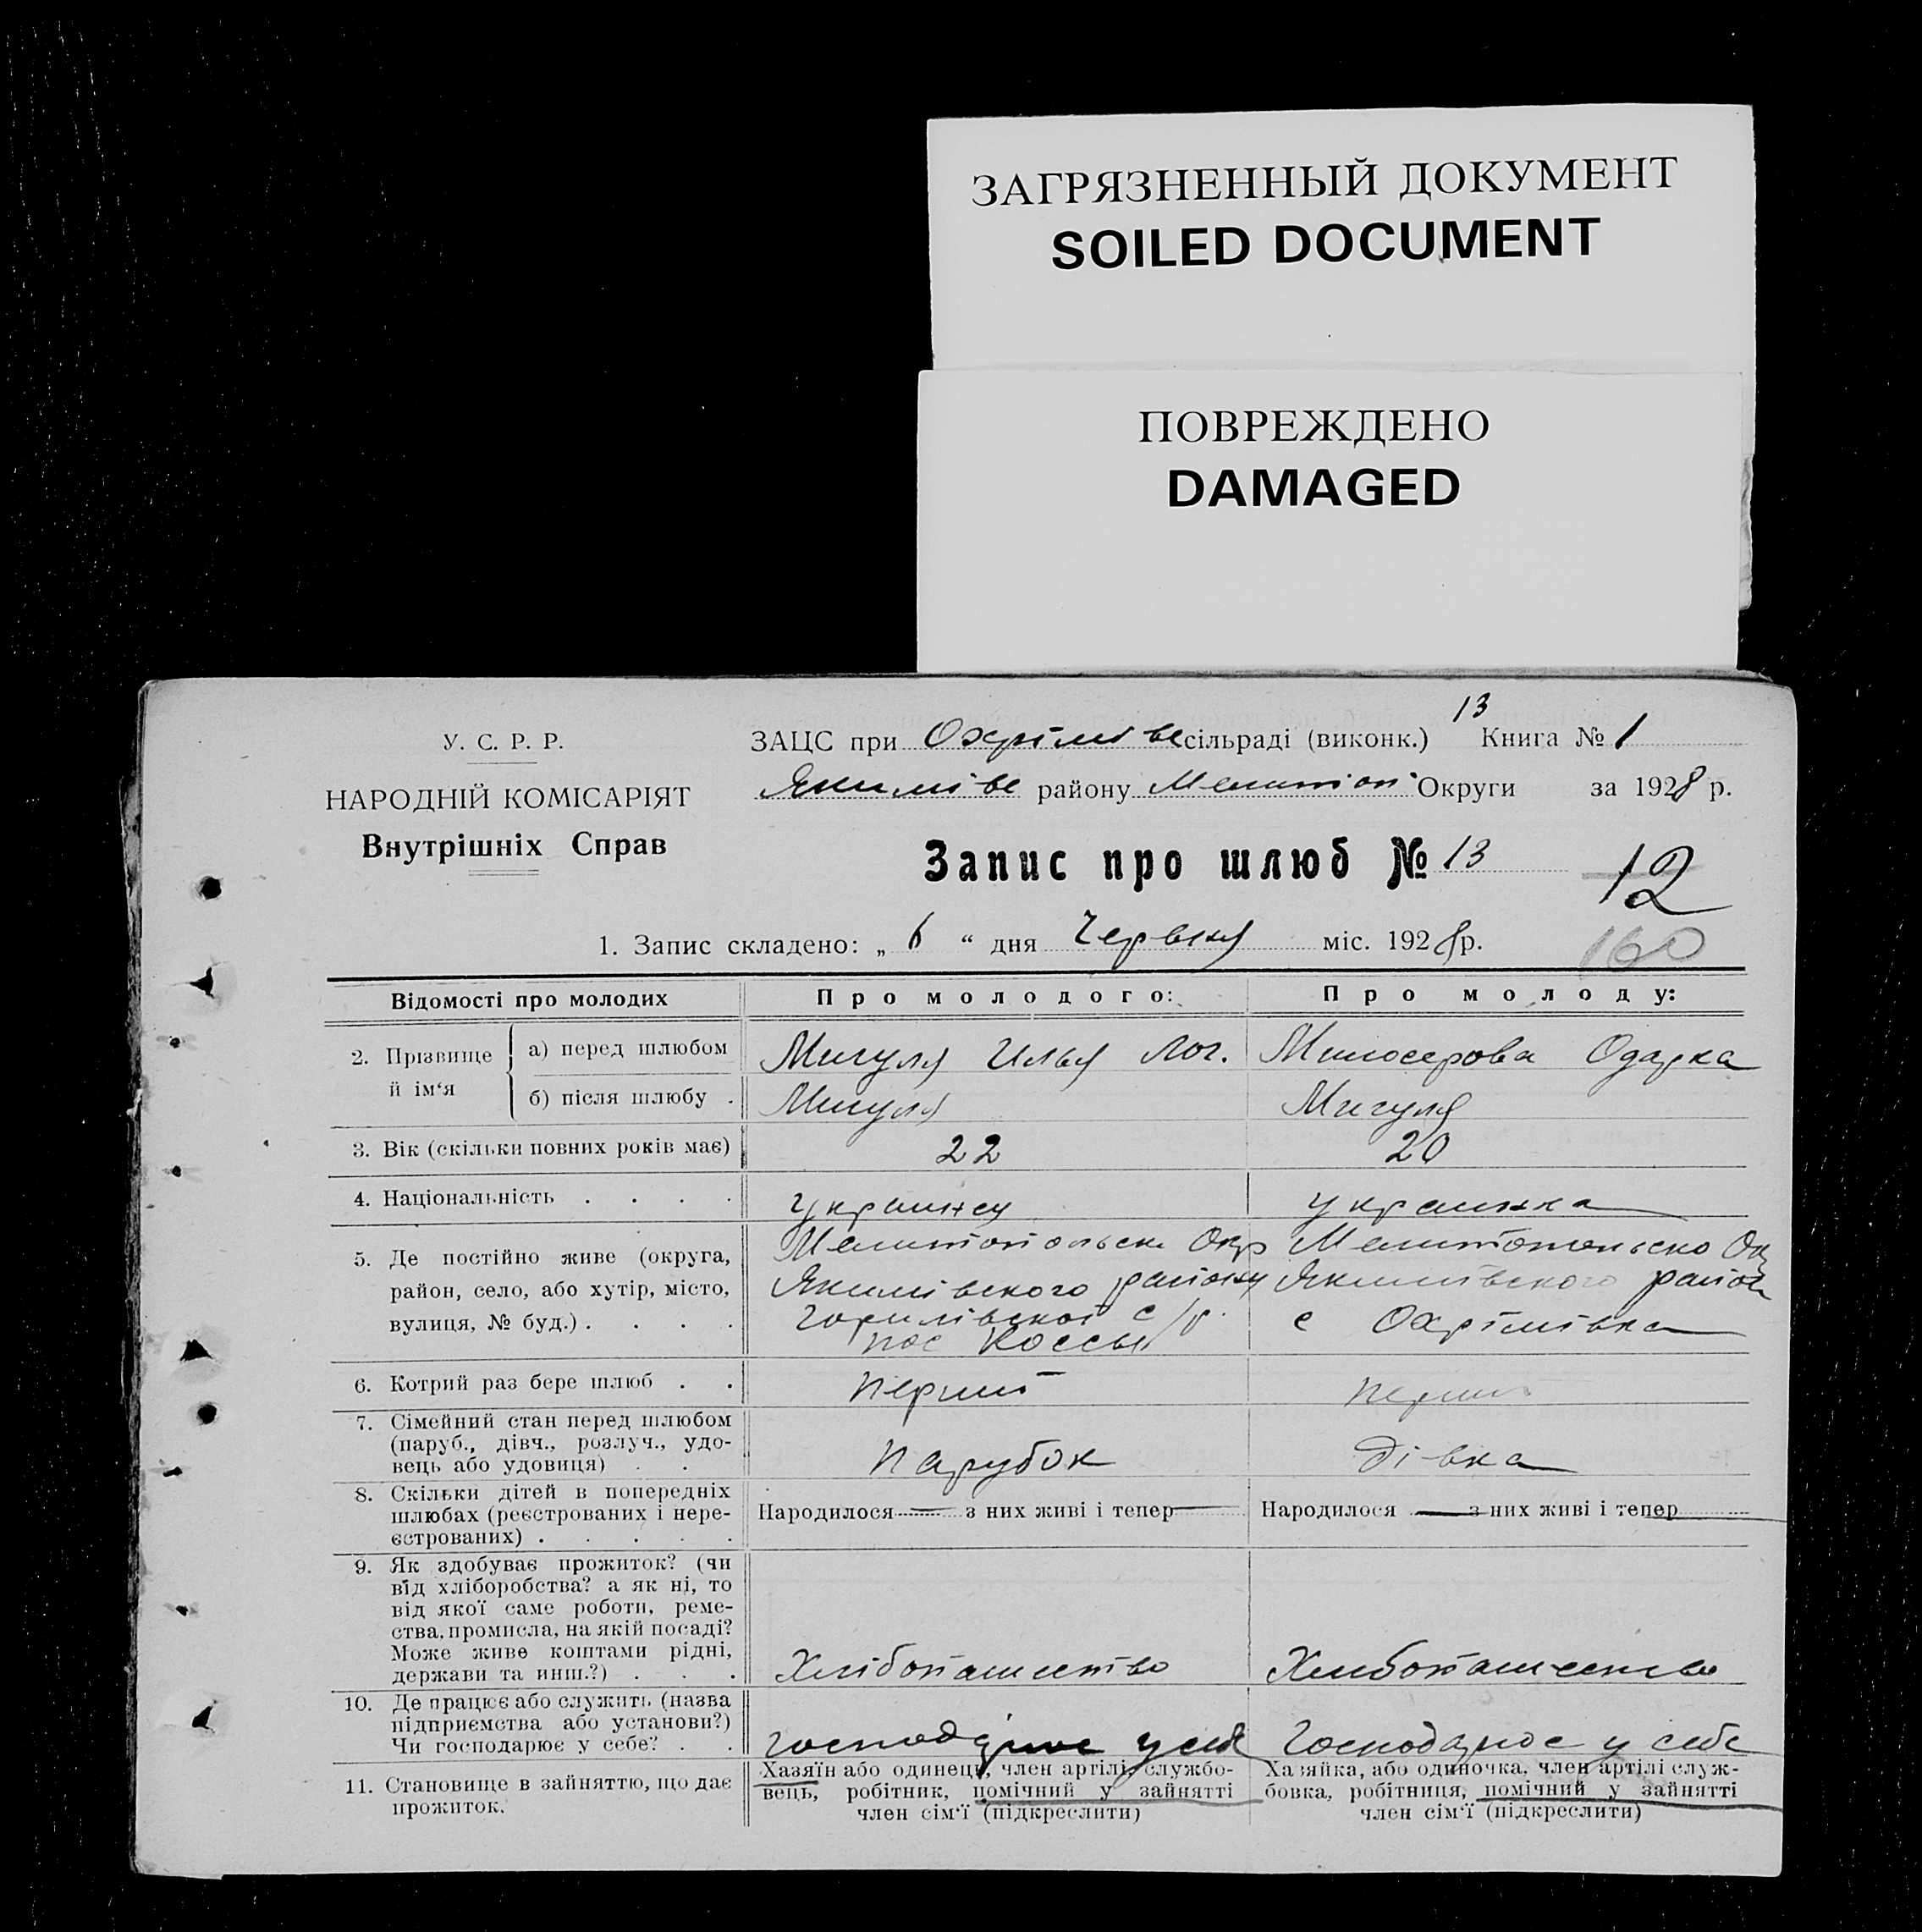 ЗАГРЯЗНЕННЫЙ ДОКУМЕНТ
SOILED DOCUMENT
ПОВРЕЖДЕНО
DAMAGED
У. С. Р. Р.
НАРОДНІЙ КОМІСАРІЯТ
Внутрішніх Справ
13
ЗАЦС при Охрімівс сільраді (виконк.) Книга № 1
Якимівс району Мелитоп Округи за 1928 р.
Запис про шлюб № 13
12
160
1. Запис складено: „ 6 “ дня Червня міс. 1928 р.
Відомості про молодих Про молодого: Про молоду:
2. Прізвище й ім‘я а) перед шлюбом Мигуля Илья Лог. Милосерова Одарка
б) після шлюбу . Мигуля Мигуля
3. Вік (скільки повних років має) 22 20
4. Національність . . . . украинец украинка
5. Де постійно живе (округа, Мелитопольск Окр Мелитопольско Ок
район, село, або хутір, місто, Якимівского району Якимівского район
вулиця, № буд.) . . . . с/р. с Охрімівка
пос
6. Котрий раз бере шлюб . . перший перший
7. Сімейний стан перед шлюбом
(паруб., дівч., розлуч., удо-
вець або удовиця) . . парубок дівка
8. Скільки дітей в попередніх
шлюбах (реєстрованих і нере- Народилося — з них живі і тепер — Народилося — з них живі і тепер
єстрованих) . . . . .
9. Як здобуває прожиток? (чи
від хліборобства? а як ні, то
від якої саме роботи, реме-
ства, промисла, на якій посаді?
Може живе коштами рідні,
держави та инш.?) . . . Хлібопашество Хлібопашество
10. Де працює або служить (назва
підприємства або установи?)
Чи господарює у себе? . . господарює у себе Господарює у себе
11. Становище в зайняттю, що дає прожиток. Хазяїн або одинець, член артілі, службо- Хазяйка, або одиночка, член артілі служ-
вець, робітник, помічний у зайнятті бовка, робітниця, помічний у зайнятті
член сім‘ї (підкреслити) член сім‘ї (підкреслити)